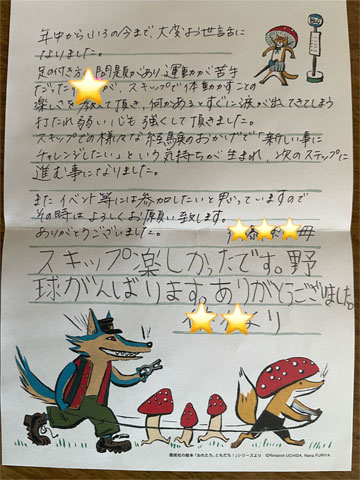 年中からいろの今まで、大変お世話に
なりました。
足の付き方に問題があり、運動が苦手
だった が、スキップで体動かすことの
楽しさを教えて頂き、何かあるとすぐに涙が出てきてしまう
打たれ弱い心も強くして頂きました。
スキップでの様々な経験のおかげで「新しい事に
チャレンジしたい」という気持ちが生まれ、次のステップに
進む事になりました。
またイベント等には参加したいと思っていますので
その時はよろしくお願い致します。
ありがとうございました。
母
スキップ楽しかったです。野
球がんばります。ありがとうございました。
より
偕成社の絵本「おれたち、ともだち!」シリーズより ©Rintaro UCHIDA, Nana FURIYA